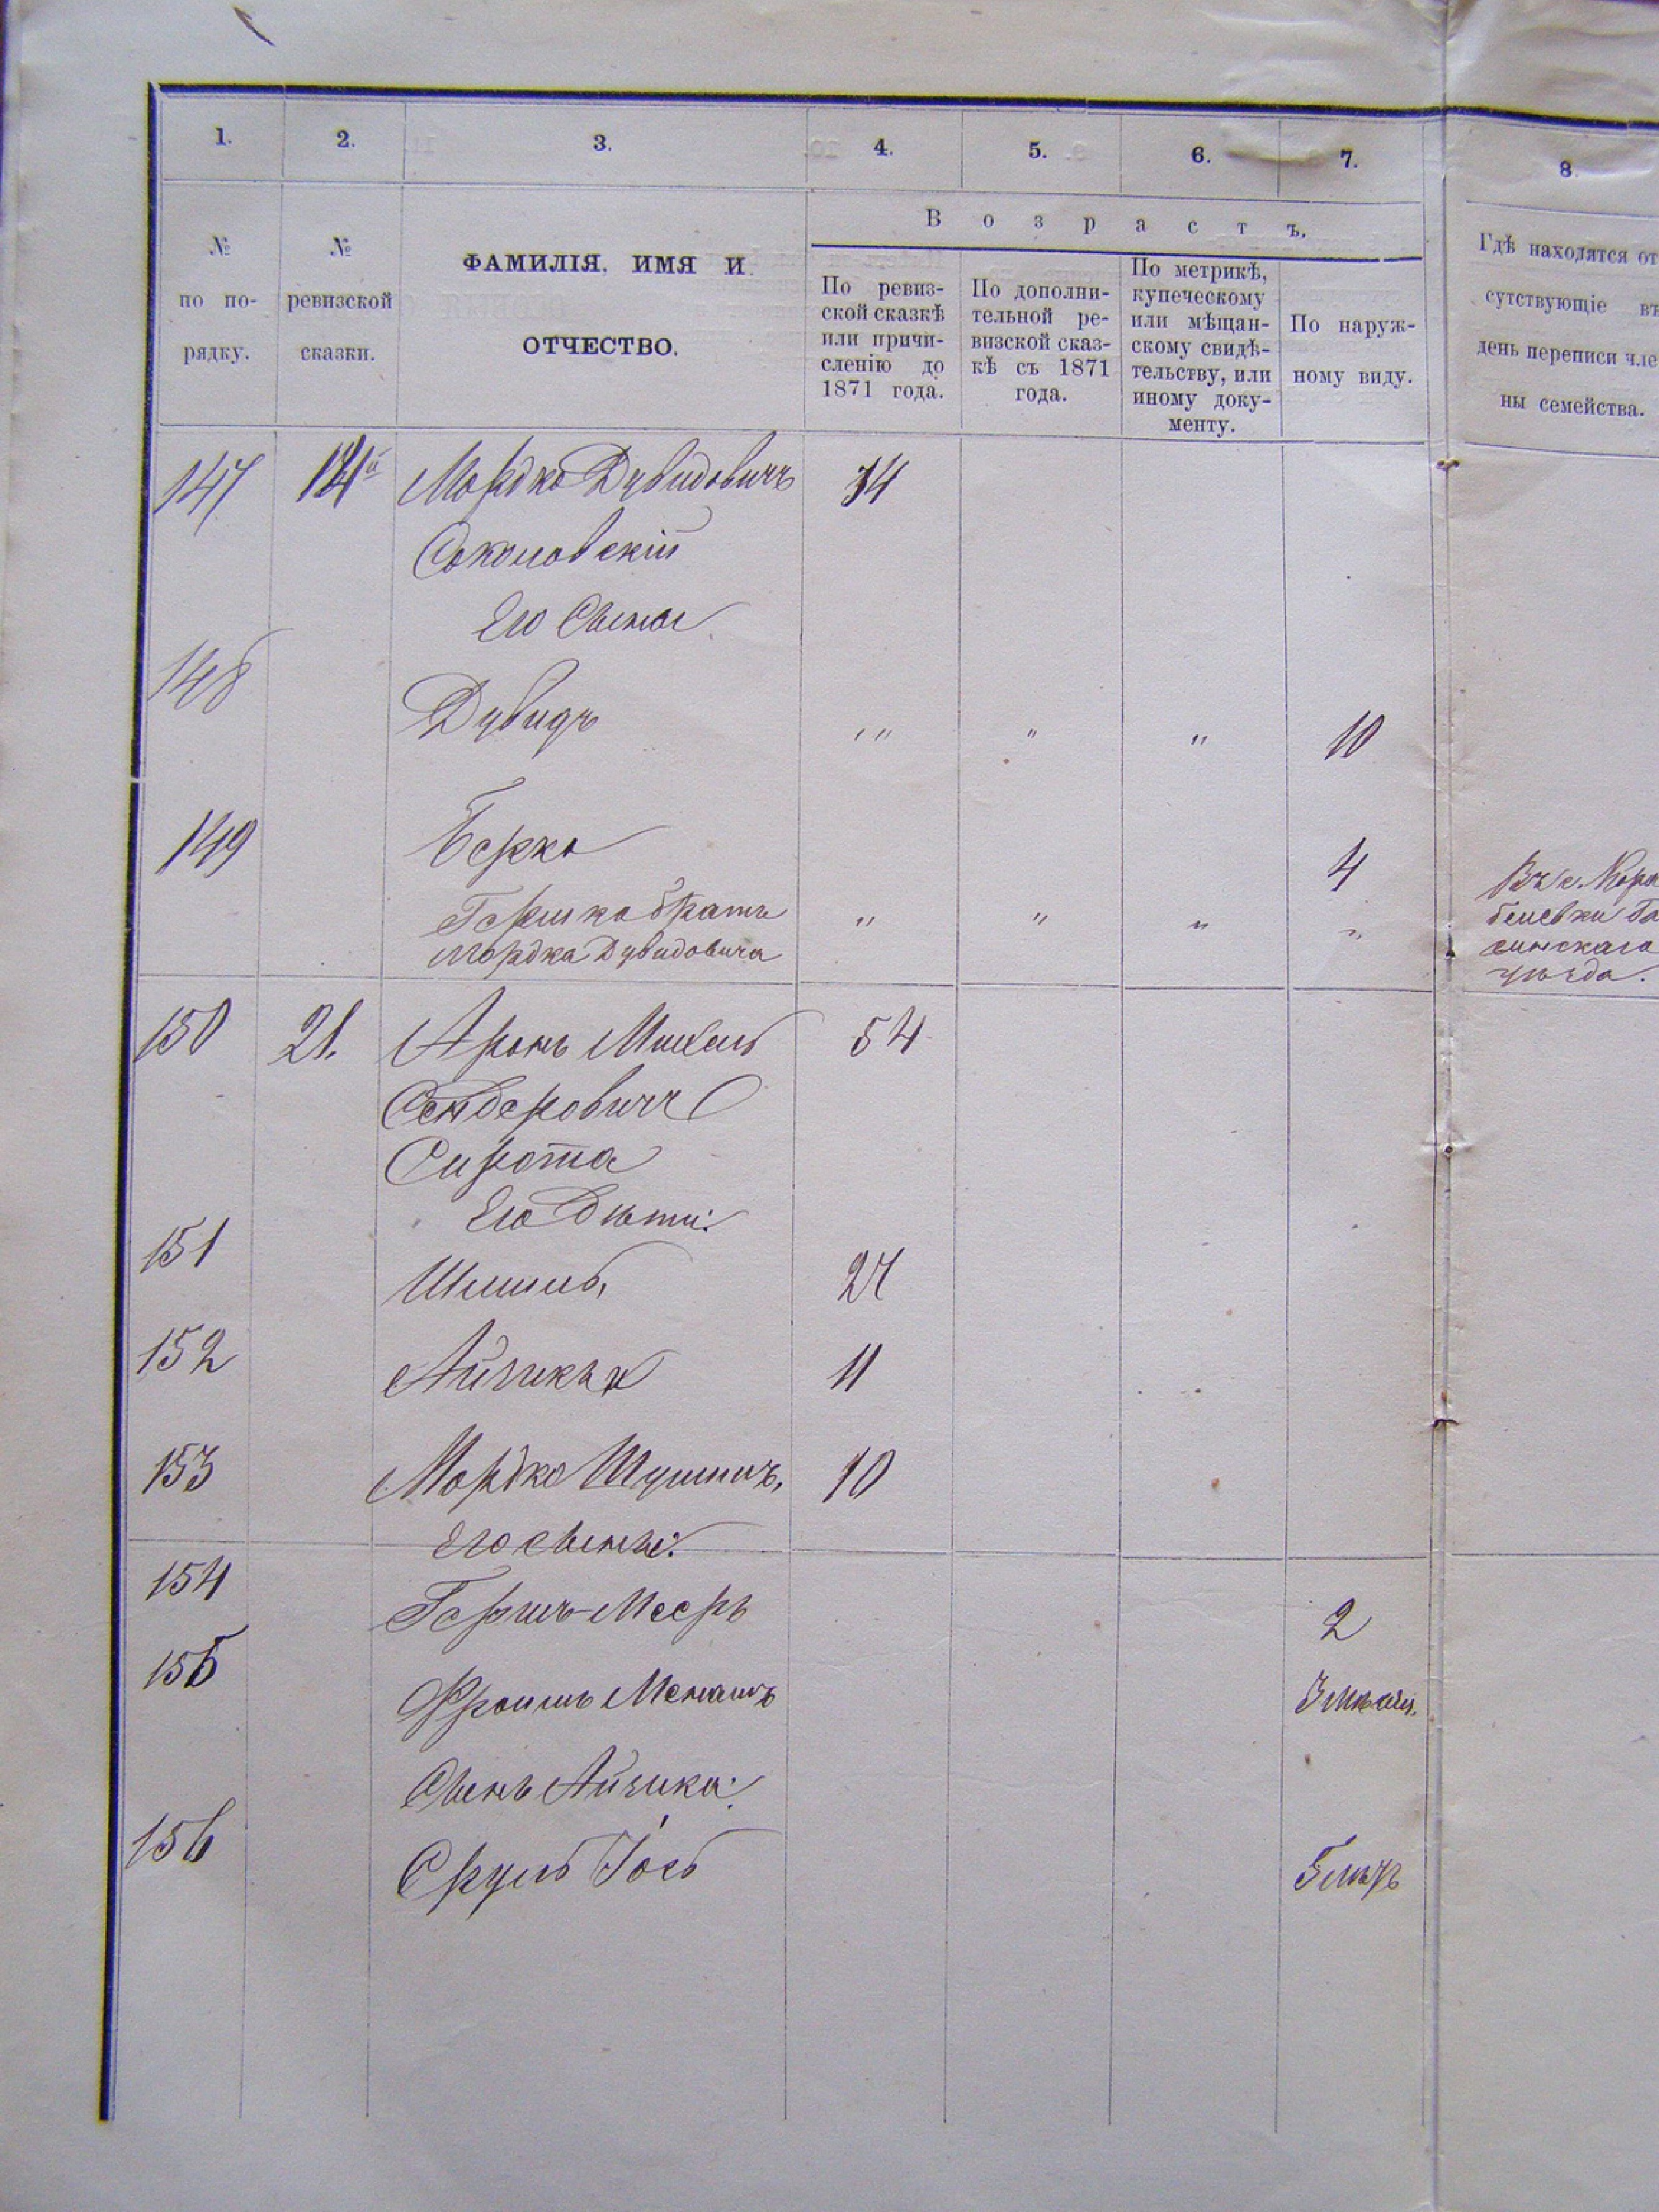 1. 2. 3. 4. 5. 6. 7. 8
№ по по- рядку.
№ ревизской сказки.
ФАМИЛІЯ, ИМЯ И
ОТЧЕСТВО.
Возрастъ.
По ревиз-
ской сказкѣ
или причи-
сленію до
1871 года.
По дополни-
тельной ре-
визской сказ-
кѣ съ 1871
года.
По метрикѣ,
купеческому
или мѣщан-
скому свидѣ-
тельству, или
иному доку-
менту.
По наруж-
ному виду.
Гдѣ находятся от
сутствующіе въ
день переписи чле
ны семейства.
147 Мордко Дувидовичъ
Соколовскій
Его Сыны
148 Дувидъ " " " 10
149 Берко 4
Гершко братъ " " " "
Мордка Дувидовича
Въ с.
уѣзда.
150 21. Аронъ Михель 54
Сендеровичъ
Сирота
Его Дѣти:
151 27
152 Айзикъ и 11
153 Мордко 10
Его сыны:
154 Гершъ-Мееръ 2
155 Фроимъ Менашъ
Сынъ Айзика:
156 Сруль Іось